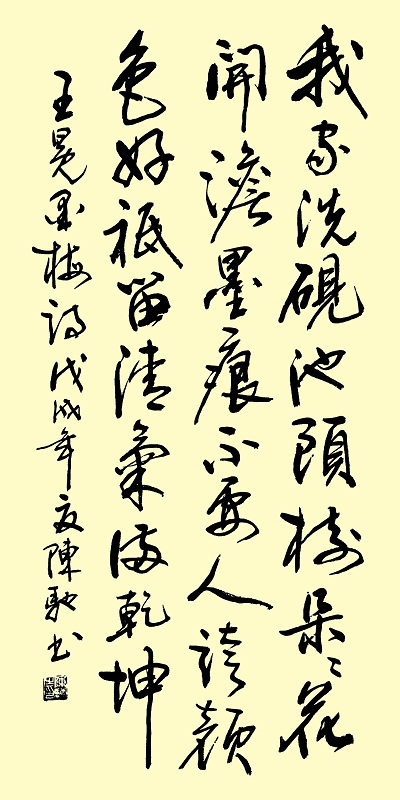 我家洗硯池頭樹朵々花
開澹墨痕不要人誇顏
色好祇留清氣滿乾坤
王冕墨梅詩戊戌年夏陳馳書